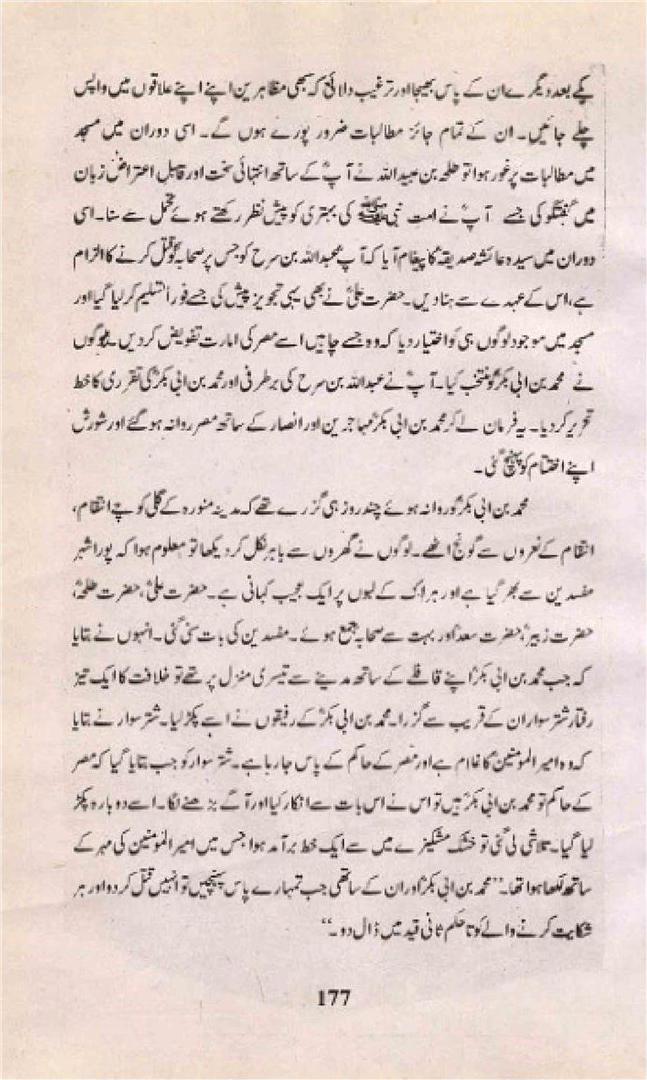 یکے بعد دیگرے ان کے پاس بھیجا اور ترغیب دلائی کہ سبھی مظاہرین اپنے اپنے علاقوں میں واپس
چلے جائیں۔ ان کے تمام جائز مطالبات ضرور پورے ہوں گے۔ اسی دوران میں مسجد
میں مطالبات پر غور ہوا تو طلحہ بن عبید اللہ نے آپؓ کے ساتھ انتہائی سخت اور قابل اعتراض زبان
میں گفتگو کی جسے آپؓ نے امت نبی ﷺ کی بہتری کو پیش نظر رکھتے ہوئے تحمل سے سنا۔ اسی
دوران میں سیدہ عائشہ صدیقہؓ کا پیغام آیا کہ آپؓ عبداللہ بن سرح کو جس پر صحابہؓ کو قتل کرنے کا الزام
ہے، اس کے عہدے سے ہٹا دیں۔ حضرت علیؓ نے بھی یہی تجویز پیش کی جسے فوراً تسلیم کر لیا گیا اور
مسجد میں موجود لوگوں ہی کو اختیار دیا کہ وہ جسے چاہیں اسے مصر کی امارت تفویض کر دیں۔ لوگوں
نے محمد بن ابی بکرؓ کو منتخب کیا۔ آپؓ نے عبداللہ بن سرح کی برطرفی اور محمد بن ابی بکرؓ کی تقرری کا خط
تحریر کر دیا۔ یہ فرمان لے کر محمد بن ابی بکرؓ مہاجرین اور انصار کے ساتھ مصر روانہ ہو گئے اور شورش
اپنے اختتام کو پہنچ گئی۔
محمد بن ابی بکرؓ کو روانہ ہوئے چند روز ہی گزرے تھے کہ مدینہ منورہ کے گلی کوچے انتقام،
انتقام کے نعروں سے گونج اٹھے۔ لوگوں نے گھروں سے باہر نکل کر دیکھا تو معلوم ہوا کہ پورا شہر
مفسدین سے بھر گیا ہے اور ہر اک کے لبوں پر ایک عجیب کہانی ہے۔ حضرت علیؓ، حضرت طلحہؓ،
حضرت زبیرؓ، حضرت سعدؓ اور بہت سے صحابہؓ جمع ہوئے۔ مفسدین کی بات سنی گئی۔ انہوں نے بتایا
کہ جب محمد بن ابی بکرؓ اپنے قافلے کے ساتھ مدینے سے تیسری منزل پر تھے تو خلافت کا ایک تیز
رفتار شتر سوار ان کے قریب سے گزرا۔ محمد بن ابی بکرؓ کے رفیقوں نے اسے پکڑ لیا۔ شتر سوار نے بتایا
کہ وہ امیر المومنینؓ کا غلام ہے اور مصر کے حاکم کے پاس جا رہا ہے۔ شتر سوار کو جب بتایا گیا کہ مصر
کے حاکم تو محمد بن ابی بکرؓ ہیں تو اس نے اس بات سے انکار کیا اور آگے بڑھنے لگا۔ اسے دوبارہ پکڑ
لیا گیا۔ تلاشی لی گئی تو خشک مشکیزے میں سے ایک خط برآمد ہوا جس میں امیر المومنین کی مہر کے
ساتھ لکھا ہوا تھا۔ ”محمد بن ابی بکرؓ اور ان کے ساتھی جب تمہارے پاس پہنچیں تو انہیں قتل کر دو اور ہر
شکایت کرنے والے کو تا حکم ثانی قید میں ڈال دو۔“
177